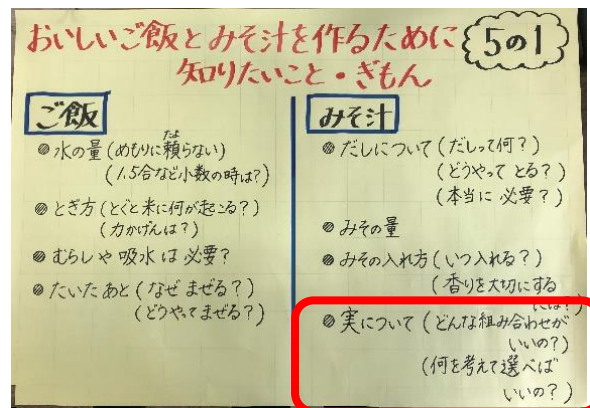 おいしいご飯とみそ汁を作るために
5の1
知りたいこと・ぎもん
ご飯
◎水の量(めもりに頼らない)
たよ
(1.5合など小数の時は?)
◎とぎ方(とぐと米に何が起こる?)
(力かげんは?)
◎むらしや吸水は必要?
◎たいたあと(なぜまぜる?)
(どうやってまぜる?)
みそ汁
◎だしについて(だしって何?)
(どうやってとる?)
(本当に必要?)
◎みその量
◎みその入れ方(いつ入れる?)
(香りを大切にする
には?)
◎実について(どんな組み合わせが
いいの?)
(何を考えて選べば
いいの?)